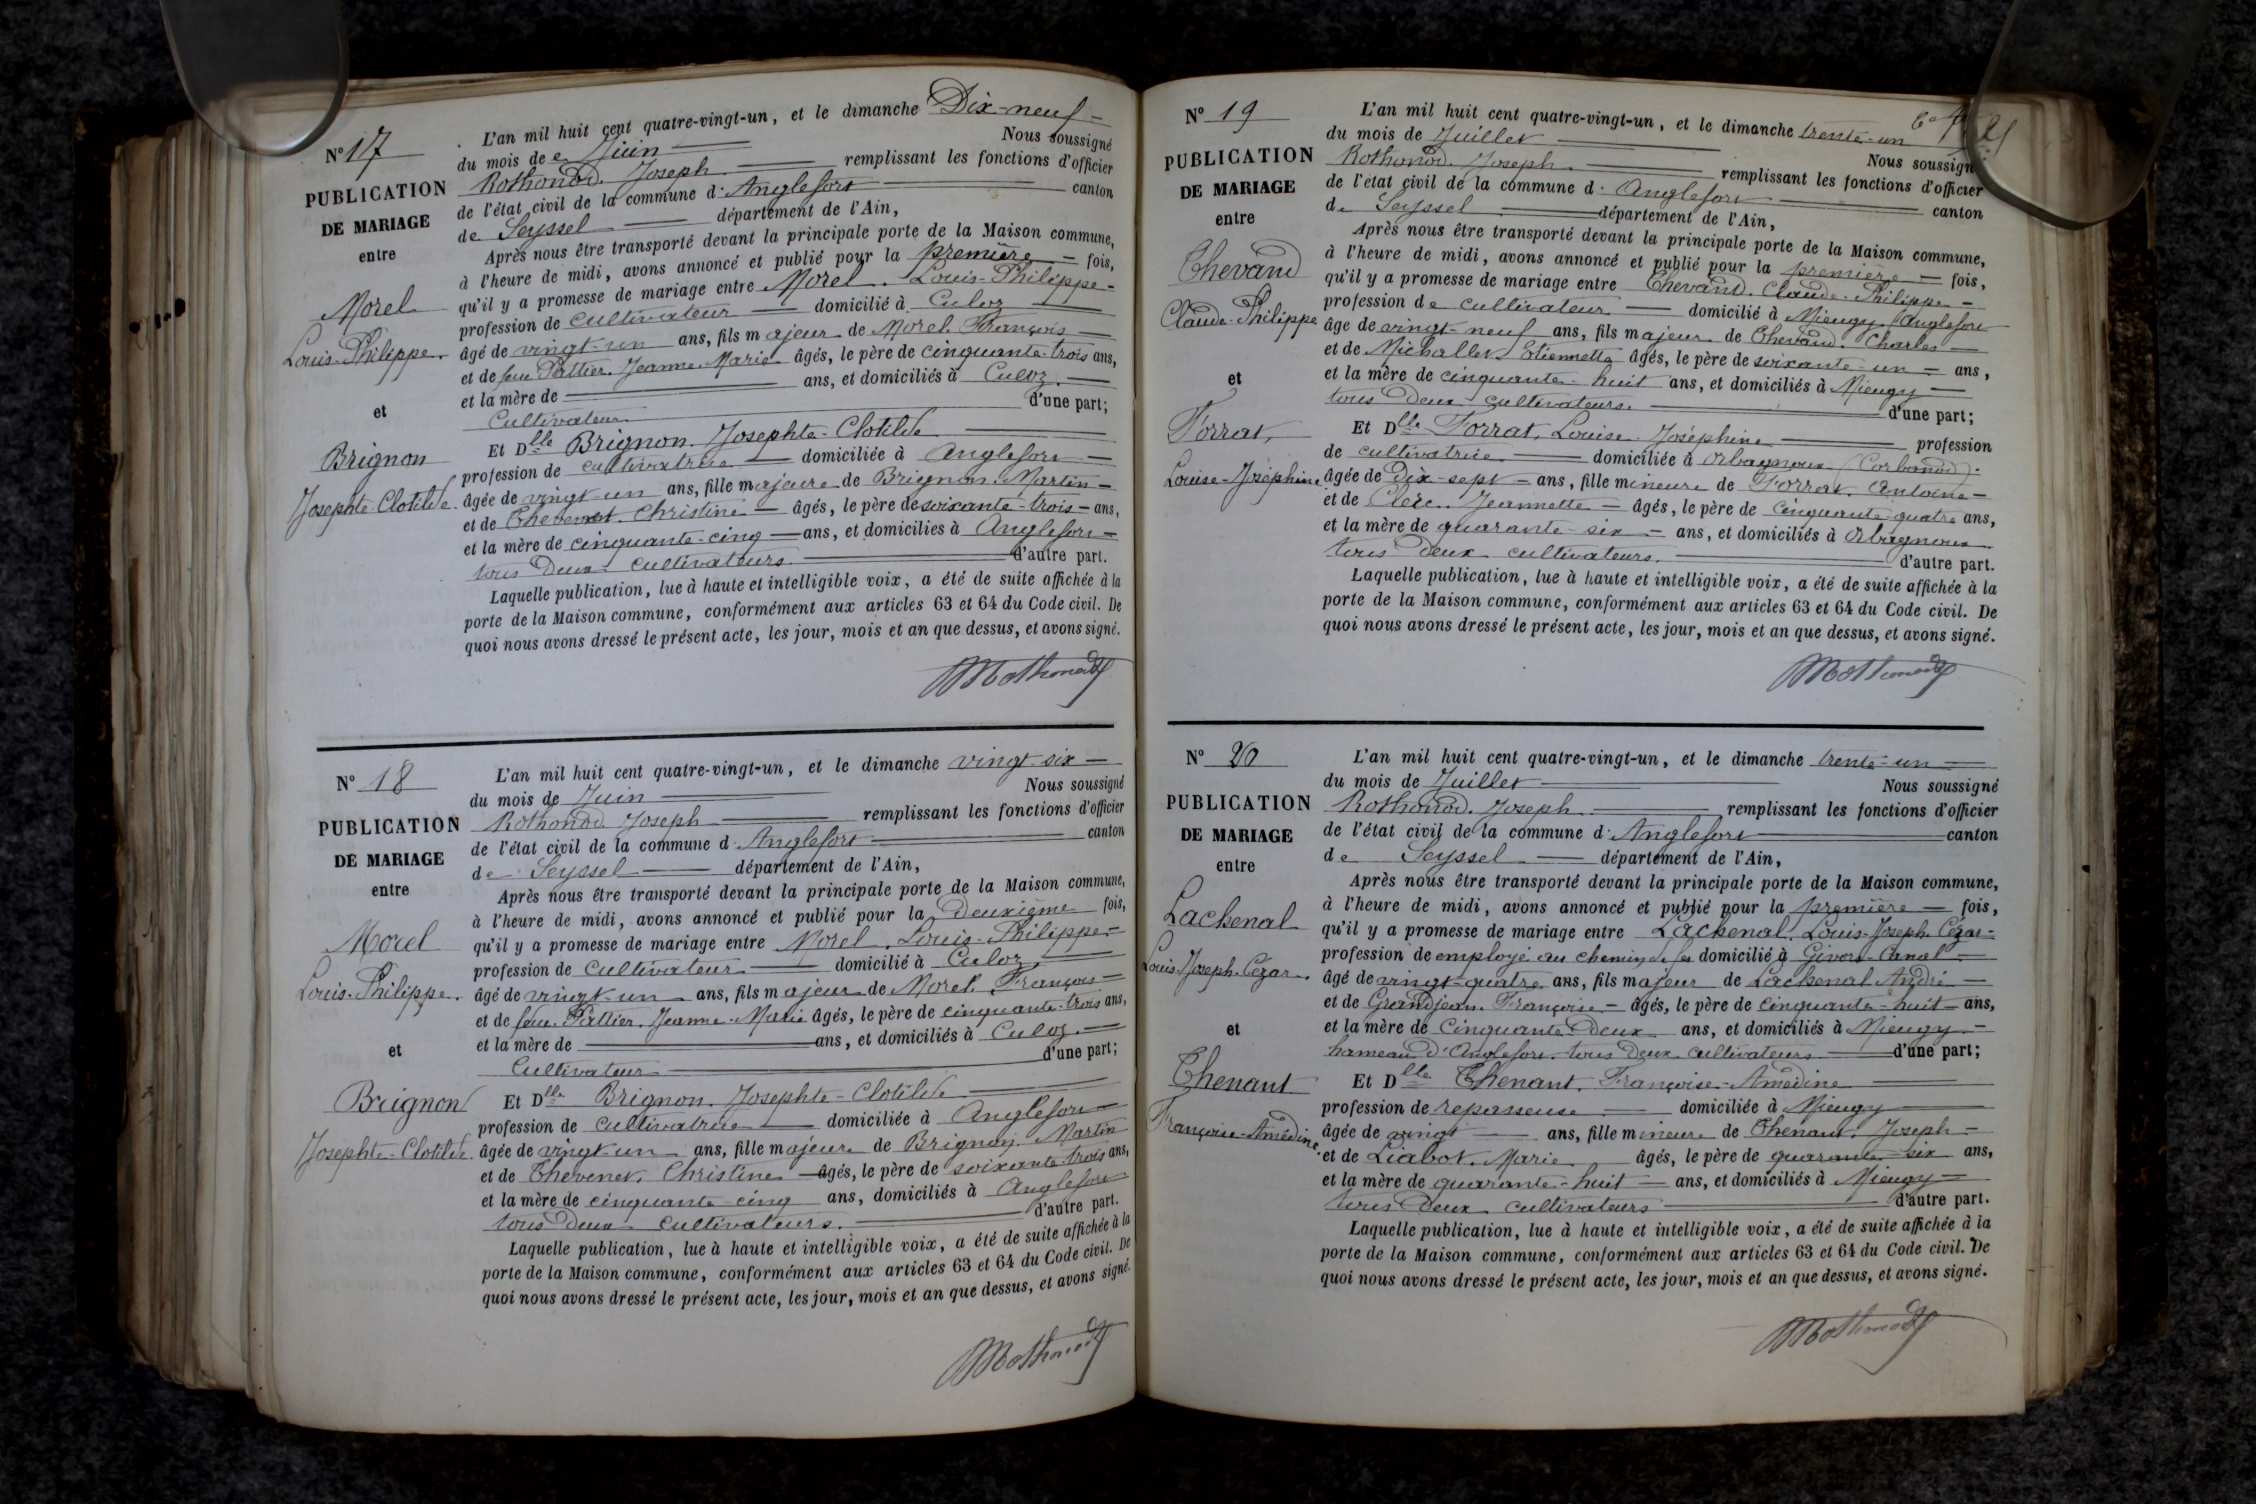 N° 17
PUBLICATION
DE MARIAGE
entre
Morel
Louis-Philippe.
et
Brignon
Josephte-Clotilde.
L'an mil huit cent quatre-vingt-un, et le dimanche Dix-neuf
du mois de Juin Nous soussigné
Rothonod. Joseph remplissant les fonctions d'officier
de l'état civil de la commune d'Anglefort canton
de Seyssel département de l'Ain,
Après nous être transporté devant la principale porte de la Maison commune,
à l'heure de midi, avons annoncé et publié pour la première fois,
qu'il y a promesse de mariage entre Morel. Louis-Philippe
profession de cultivateur domicilié à Culoz
âgé de vingt-un ans, fils majeur de Morel François
et de feue Pallier. Jeanne-Marie âgés, le père de cinquante-trois ans,
et la mère de ans, et domiciliés à Culoz.
Cultivateur d'une part;
Et Dlle Brignon. Josephte-Clotilde
profession de cultivatrice domiciliée à Anglefort
âgée de vingt-un ans, fille majeure de Brignon. Martin
et de Thevenet. Christine âgés, le père de soixante-trois ans,
et la mère de cinquante-cinq ans, et domiciliés à Anglefort
tous deux cultivateurs. d'autre part.
Laquelle publication, lue à haute et intelligible voix, a été de suite affichée à la
porte de la Maison commune, conformément aux articles 63 et 64 du Code civil. De
quoi nous avons dressé le présent acte, les jour, mois et an que dessus, et avons signé.
Rothonod
N° 18
PUBLICATION
DE MARIAGE
entre
Morel
Louis-Philippe.
et
Brignon
Josephte-Clotilde.
L'an mil huit cent quatre-vingt-un, et le dimanche vingt-six
du mois de Juin Nous soussigné
Rothonod Joseph remplissant les fonctions d'officier
de l'état civil de la commune d'Anglefort canton
de Seyssel département de l'Ain,
Après nous être transporté devant la principale porte de la Maison commune,
à l'heure de midi, avons annoncé et publié pour la Deuxième fois,
qu'il y a promesse de mariage entre Morel. Louis-Philippe
profession de cultivateur domicilié à Culoz.
âgé de vingt-un ans, fils majeur de Morel. François
et de feue. Pallier. Jeanne-Marie âgés, le père de cinquante-trois ans,
et la mère de ans, et domiciliés à Culoz.
Cultivateur d'une part;
Et Dlle Brignon. Josephte-Clotilde
profession de cultivatrice domiciliée à Anglefort
âgée de vingt-un ans, fille majeure de Brignon. Martin
et de Thevenet. Christine âgés, le père de soixante trois ans,
et la mère de cinquante-cinq ans, domiciliés à Anglefort
tous deux cultivateurs. d'autre part.
Laquelle publication, lue à haute et intelligible voix, a été de suite affichée à la
porte de la Maison commune, conformément aux articles 63 et 64 du Code civil. De
quoi nous avons dressé le présent acte, les jour, mois et an que dessus, et avons signé.
Rothonod
N° 19
PUBLICATION
DE MARIAGE
entre
Chevand
Claude-Philippe
et
Forrat,
Louise-Joséphine
L'an mil huit cent quatre-vingt-un, et le dimanche trente-un
du mois de Juillet Nous soussigné
Rothonod. Joseph remplissant les fonctions d'officier
de l'état civil de la commune d'Anglefort canton
de Seyssel département de l'Ain,
Après nous être transporté devant la principale porte de la Maison commune,
à l'heure de midi, avons annoncé et publié pour la première fois,
qu'il y a promesse de mariage entre Chevand. Claude-Philippe
profession de cultivateur domicilié à Mieugy. (Anglefort
âgé de vingt-neuf ans, fils majeur de Chevand. Charles
et de Michallet Etiennette âgés, le père de soixante-un ans,
et la mère de cinquante-huit ans, et domiciliés à Mieugy
tous deux cultivateurs. d'une part;
Et Dlle Forrat. Louise. Joséphine profession
de cultivatrice domiciliée à Orbagnoux (Corbonod).
âgée de dix-sept ans, fille mineure de Forrat. Antoine
et de Clerc. Jeannette âgés, le père de cinquante-quatre ans,
et la mère de quarante-six ans, et domiciliés à Orbagnoux
tous deux cultivateurs. d'autre part.
Laquelle publication, lue à haute et intelligible voix, a été de suite affichée à la
porte de la Maison commune, conformément aux articles 63 et 64 du Code civil. De
quoi nous avons dressé le présent acte, les jour, mois et an que dessus, et avons signé.
Rothonod
N° 20
PUBLICATION
DE MARIAGE
entre
Lachenal
Louis-Joseph-Cézar.
et
Thenant
Françoise-Amédine.
L'an mil huit cent quatre-vingt-un, et le dimanche trente-un
du mois de Juillet Nous soussigné
Rothonod. Joseph remplissant les fonctions d'officier
de l'état civil de la commune d'Anglefort canton
de Seyssel département de l'Ain,
Après nous être transporté devant la principale porte de la Maison commune,
à l'heure de midi, avons annoncé et publié pour la première fois,
qu'il y a promesse de mariage entre Lachenal. Louis-Joseph Cézar
profession de employé au chemin de fer domicilié à Givors-Canal
âgé de vingt-quatre ans, fils majeur de Lachenal André
et de Grandjean. Françoise âgés, le père de cinquante-huit ans,
et la mère de Cinquante-deux ans, et domiciliés à Mieugy
hameau d'Anglefort. tous deux cultivateurs d'une part;
Et Dlle Thenant. Françoise-Amédine
profession de repasseuse domiciliée à Mieugy
âgée de vingt ans, fille mineure de Thenant. Joseph
et de Liabot. Marie âgés, le père de quarante-six ans,
et la mère de quarante-huit ans, et domiciliés à Mieugy
tous deux cultivateurs d'autre part.
Laquelle publication, lue à haute et intelligible voix, a été de suite affichée à la
porte de la Maison commune, conformément aux articles 63 et 64 du Code civil. De
quoi nous avons dressé le présent acte, les jour, mois et an que dessus, et avons signé.
Rothonod